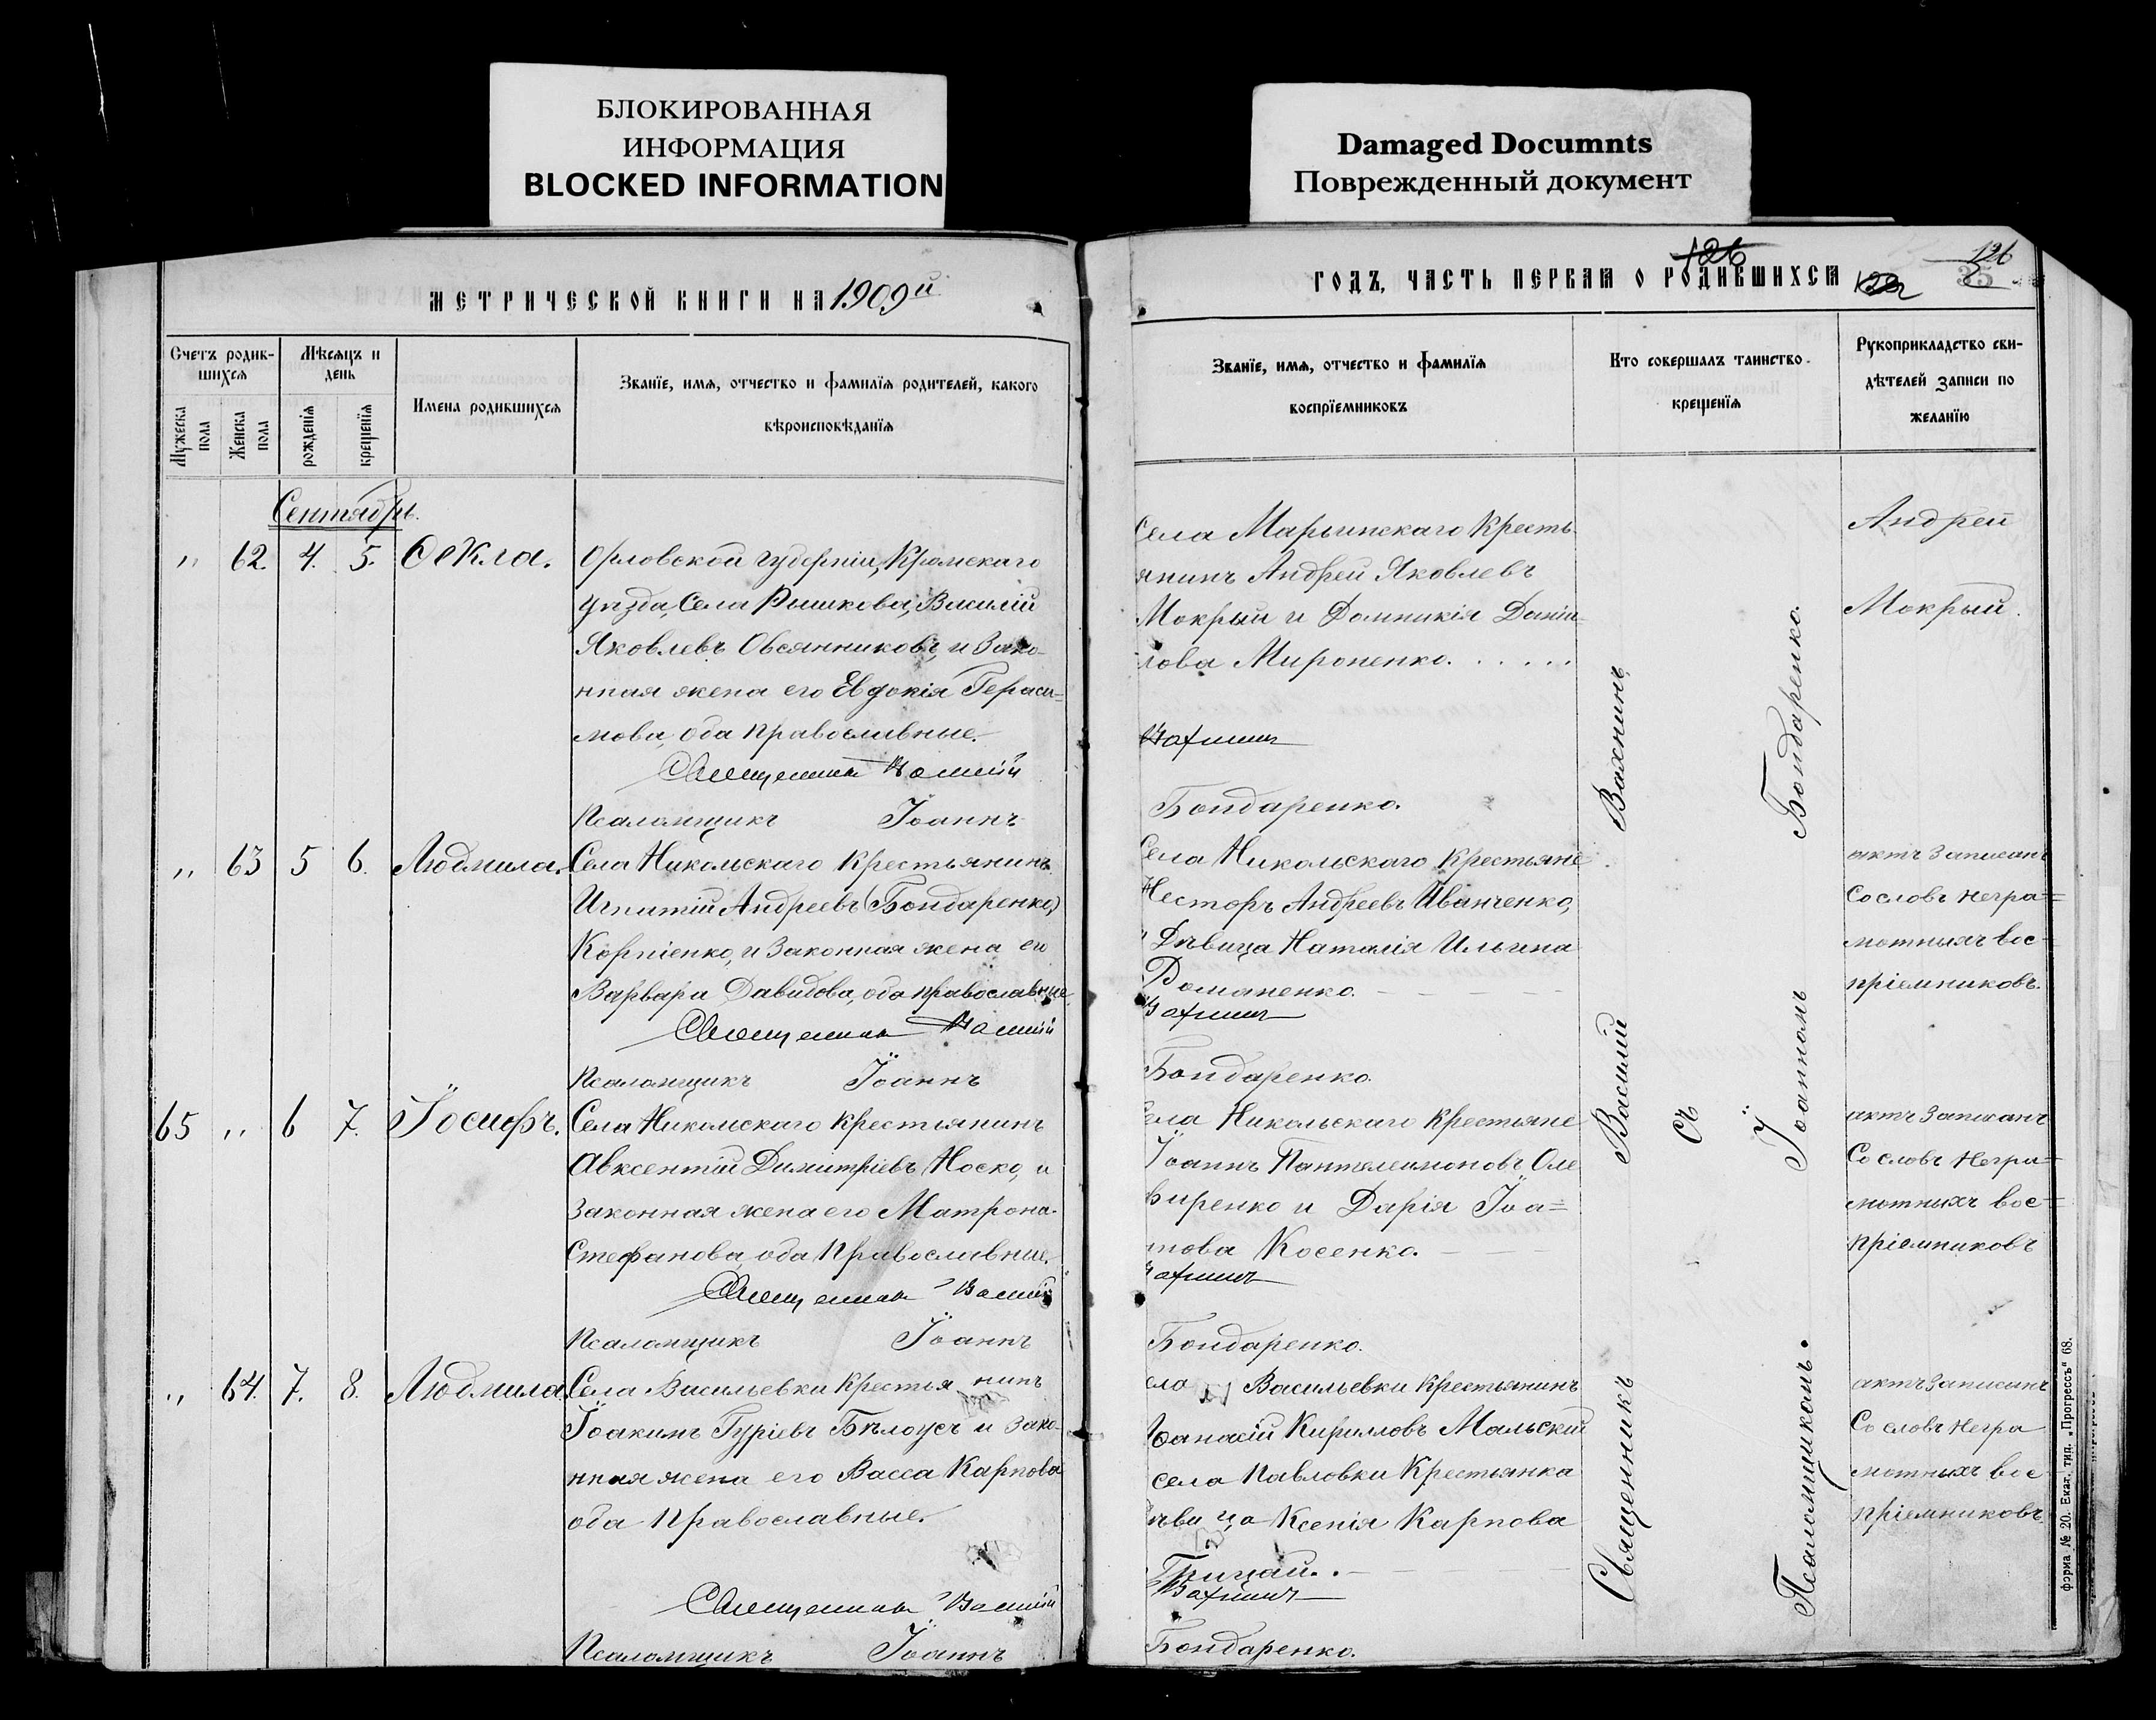 БЛОКИРОВАННАЯ
ИНФОРМАЦИЯ
BLOCKED INFORMATION
Damaged Documnts
Поврежденный документ
МЕТРИЧЕСКОЙ КНИГИ НА 1909й
Счетъ родив-
шихся
Мѣсяцъ и
день
Мужеска
пола
Женска
пола
рожденія
крещенія
Имена родившихся
Званіе, имя, отчество и фамилія родителей, какого
вѣроисповѣданія
Сентябрь.
" 62. 4. 5. Ѳекла.
Орловской губерніи, Кромскаго
уѣзда, Села Рышкова, Василій
Яковлевъ Овсянниковъ, и Зако-
нная жена его Евдокія Гераси-
мова, оба православные.
Священникъ Василій
Псаломщикъ Іоаннъ
" 63 5 6. Людмила.
Села Никольскаго крестьянинъ
Игнатій Андреевъ (Бондаренко)
Корніенко, и Законная жена его
Варвара Давидова, оба православные
Священникъ Василій
Псаломщикъ Іоаннъ
65 " 6 7. Іосифъ.
Села Никольскаго крестьянинъ
Авксентій Димитріевъ Носко, и
Законная жена его Матрона
Стефанова, оба Православные.
Священникъ Василій
Псаломщикъ Іоаннъ
" 64. 7. 8. Людмила
Села Васильевки крестья нинъ
Іоакимъ Гуріевъ Бѣлоусъ и Зако-
нная жена его Васса Карпова
оба Православные.
Священникъ Василій
Псаломщикъ Іоаннъ
ГОДЪ, ЧАСТЬ ПЕРВАЯ О РОДИВШИХСЯ
126
126
35
Званіе, имя, отчество и фамилія
воспріемниковъ
Кто совершалъ таинство
крещенія
Рукоприкладство сви-
дѣтелей записи по
желанію
Села Марьинскаго Кресть-
янинъ Андрей Яковлевъ
Мокрый и Домникія Даніи-
лова Мироненко.
Вахнинъ
Бондаренко.
Села Никольскаго Крестьяне
Несторъ Андреевъ Иванченко,
Дѣвица Наталія Ильина
Романенко.
Вахнинъ
Бондаренко.
Села Никольскаго Крестьяне
Іоаннъ Пантелеимоновъ Оле
виренко и Дарія Іоа=
нова Косенко.
Вахнинъ
Бондаренко.
ела Васильевки крестьянинъ
Кирилловъ Мальскій
села Павловки Крестьянка
ѣви ца Ксенія Карпова
Грицай.
Вахнинъ
Бондаренко.
Священникъ Василій Вахнинъ
съ
Псаломщикомъ Іоанномъ Бондаренко.
Андрей
Мокрый.
актъ записанъ
Со словъ негра=
мотныхъ вос-
пріемниковъ.
актъ записанъ
Со словъ Негра=
мотныхъ вос=
пріемниковъ
актъ записанъ
Со словъ негра
мотныхъ вос
пріемниковъ.
форма № 20. Екат. тип. „Прогрессъ“ 68.